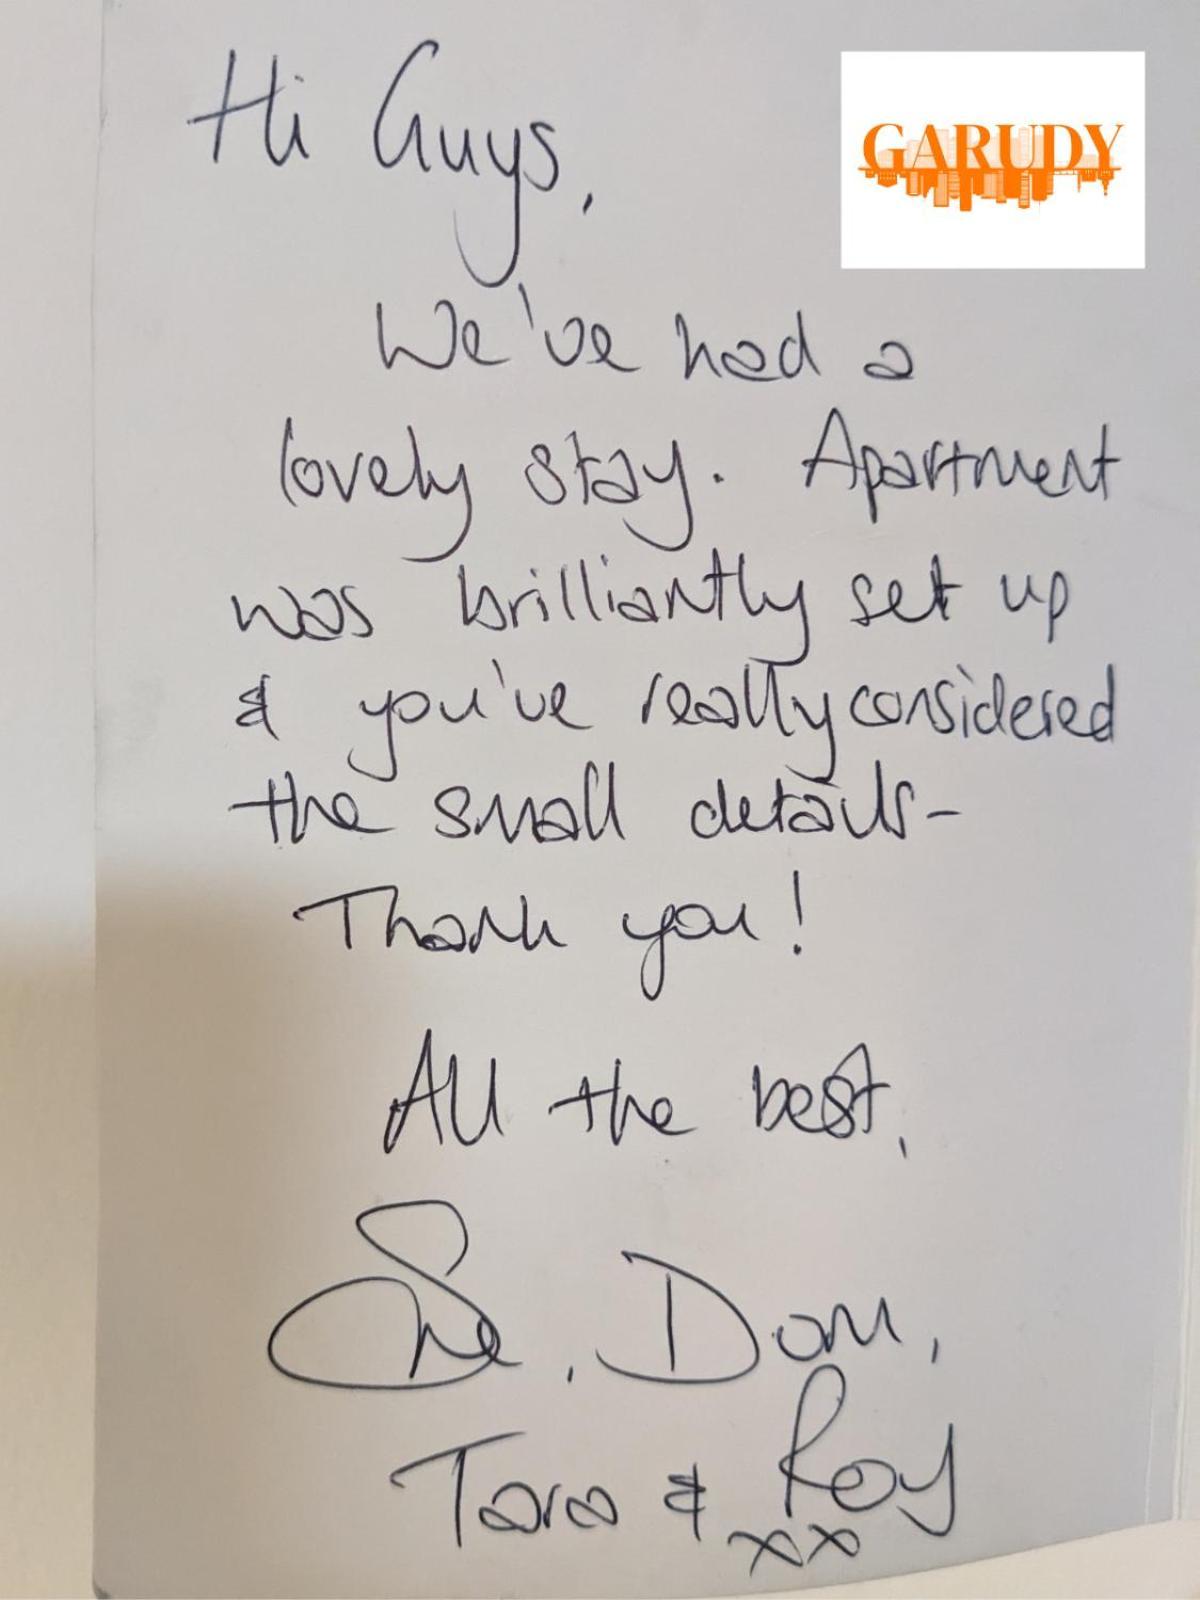 Hi Guys,
GARUDY
We've had a
lovely stay. Apartment
was brilliantly set up
& you've really considered
the small details-
Thank you!
All the best,
Sue, Dom,
Tara & Roy
xx